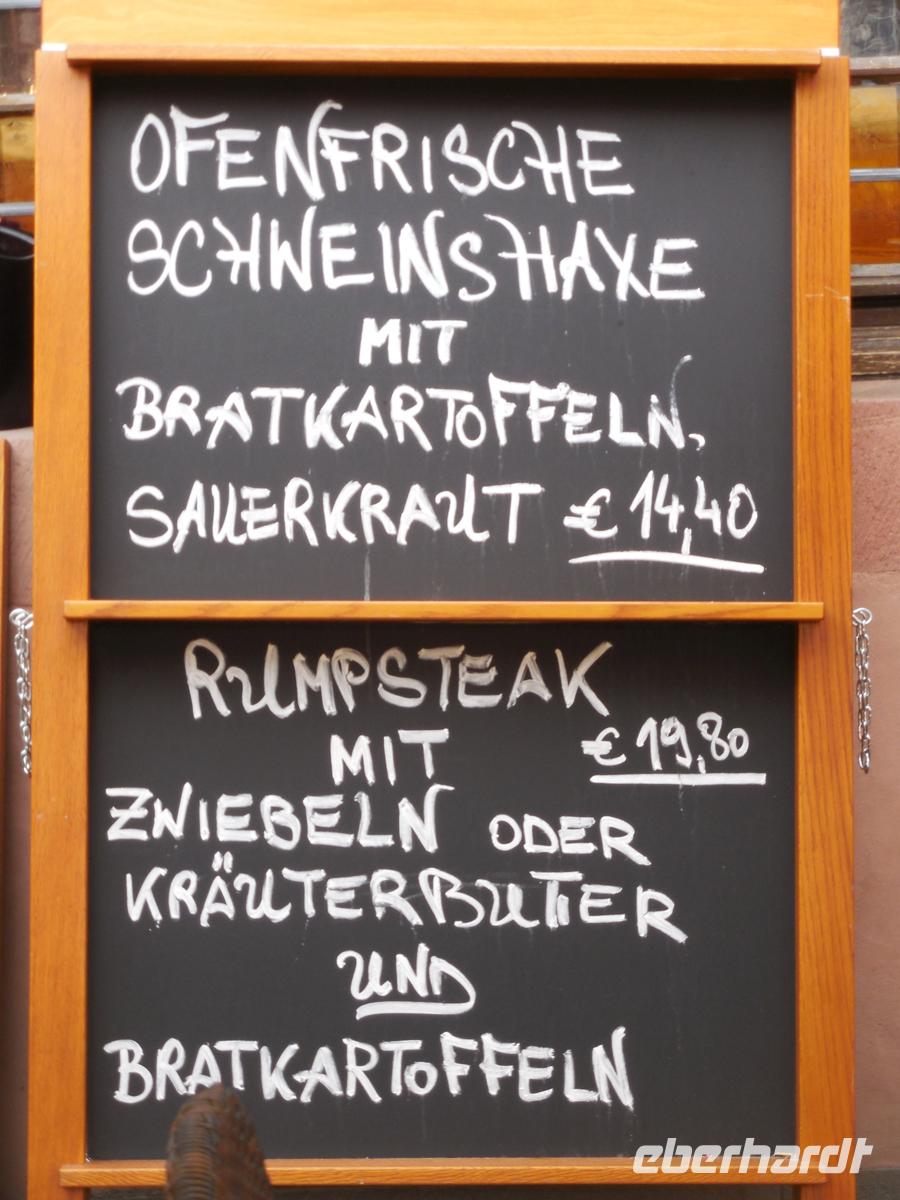 OFENFRISCHE
SCHWEINSHAXE
MIT
BRATKARTOFFELN,
SAUERKRAUT € 14,40
RUMPSTEAK
MIT € 19,80
ZWIEBELN ODER
KRÄUTERBUTTER
UND
BRATKARTOFFELN
eberhardt